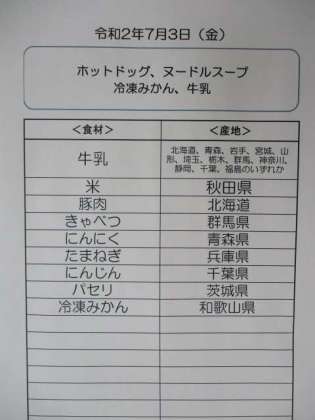 令和2年7月3日（金）
ホットドッグ、ヌードルスープ
冷凍みかん、牛乳
＜食材＞ ＜産地＞
牛乳 北海道、青森、岩手、宮城、山形、埼玉、栃木、群馬、神奈川、静岡、千葉、福島のいずれか
米 秋田県
豚肉 北海道
きゃべつ 群馬県
にんにく 青森県
たまねぎ 兵庫県
にんじん 千葉県
パセリ 茨城県
冷凍みかん 和歌山県